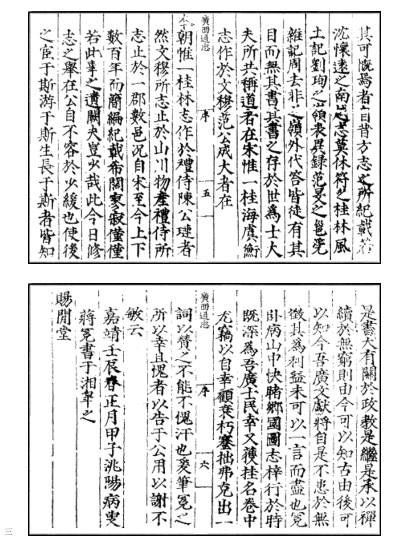 其可慨焉者曰昔方志之所紀載若
沈懷遠之南越志莫休符之桂林風
土記劉珣之嶺表異録范旻之邕莞
雜記周去非之嶺外代答皆徒有其
目而無其書其書之存於世爲士大
夫所共稱道者在宋惟一桂海虞衡
志作於文穆范公成大者在
廣西通志 序 五
朝惟一桂林志作於禮侍陳公璉者
然文穆所志止於山川物產禮侍所
志止於一郡數邑况自宋至今上下
數百年而簡編紀載希闊寥寂僅僅
若此事之遺闕夫豈少哉此今日修
志之舉在公自不容於少緩也使後
之宦于斯游于斯生長于斯者皆知
是書大有關於政教是繼是承以禪
續於無窮則由今可以知古由後可
以知今吾廣文獻將自是不患於無
徵其爲利益未可以一言而盡也冕
臥病山中快睹鄉國圖志梓行於時
既深爲吾廣士民幸又獲挂名卷中
廣西通志 序 六
尤竊以自幸顧衰朽蹇拙弗克出一
詞以贊之不能不愧汗也爰筆冕之
所以幸且愧者以告于公用以謝不
敏云
嘉靖壬辰春正月甲子洮陽病叟
蔣冕書于湘皐之
賜閒堂
三